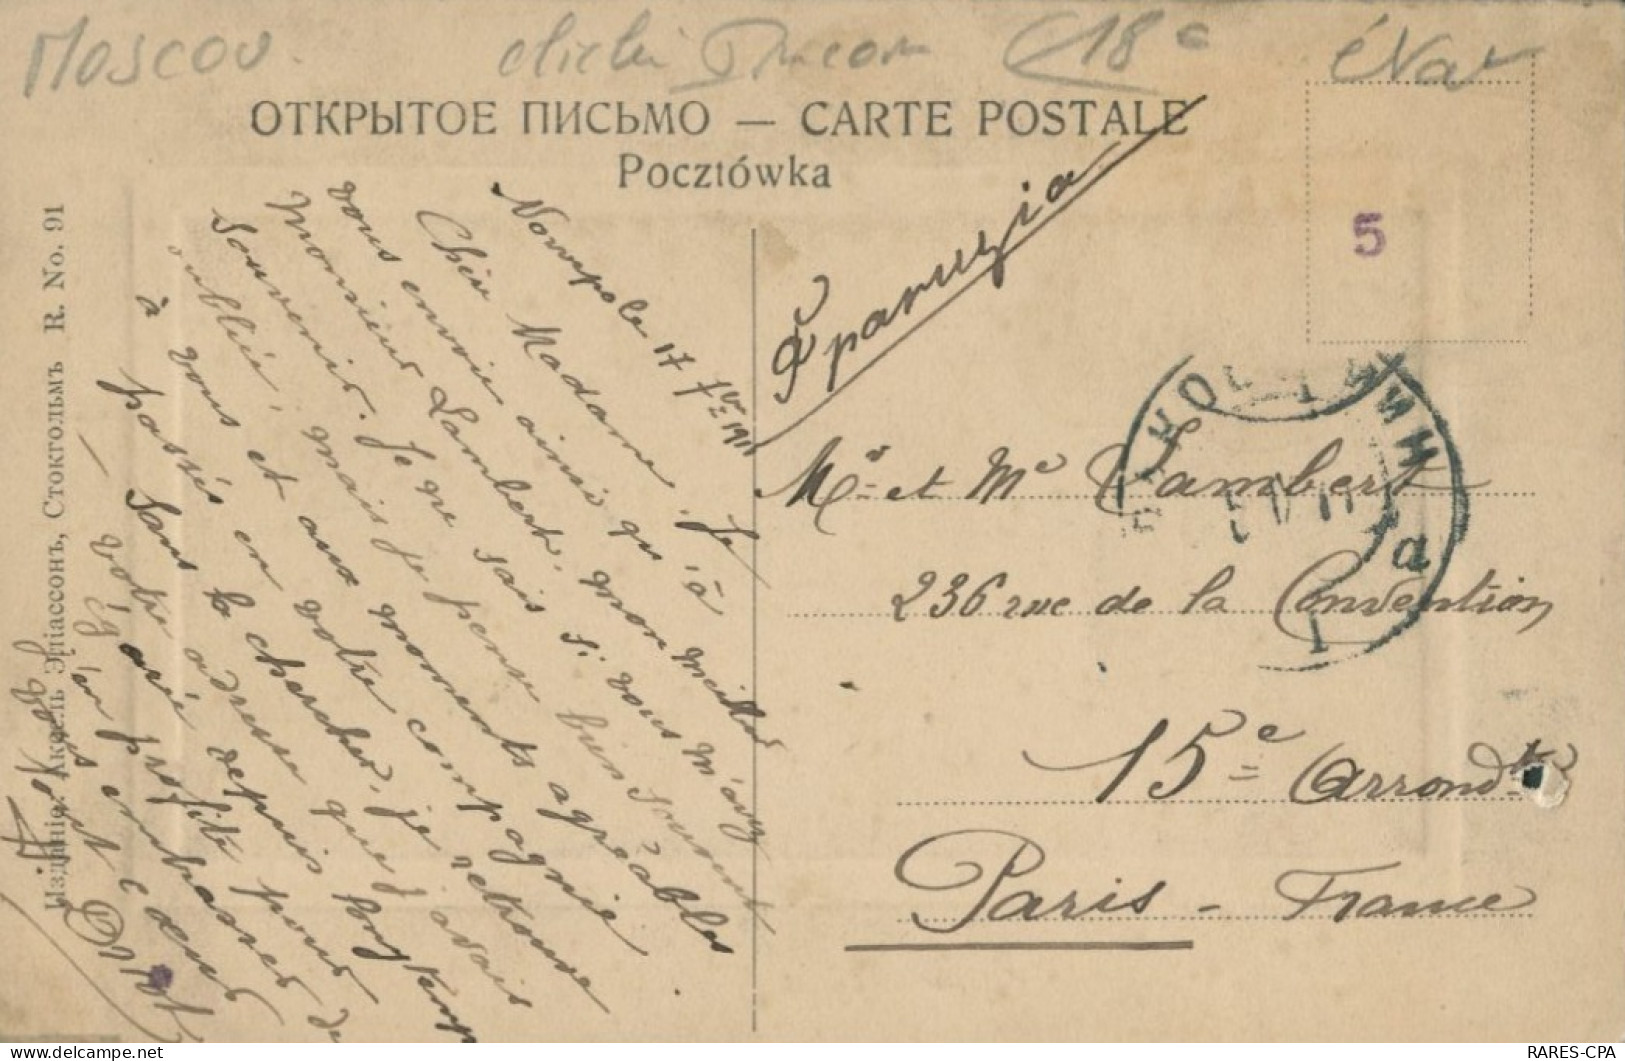 Moscou.
C18e
ОТКРЫТОЕ ПИСЬМО — CARTE POSTALE
Pocztówka
5
Изданіе: Аксель Эліассонъ, Стокгольмъ R. No. 91
17 1911
Chère Madame. Je
vous envoie ainsi qu'à
Monsieur Lambert, mon meilleur
souvenir. Je ne sais si vous m'avez
oublié, mais je pense bien souvent
à vous et aux moments agréables
passés en votre compagnie.
— Sans la chercher, je retrouve
votre adresse que j'avais
égarée depuis longtemps
j'en profite pour
vous embrasser de
tout cœur
Франція
Mr et Me Lambert
236 rue de la Convention
15e Arrondt
Paris - France
а
1
RARES-CPA